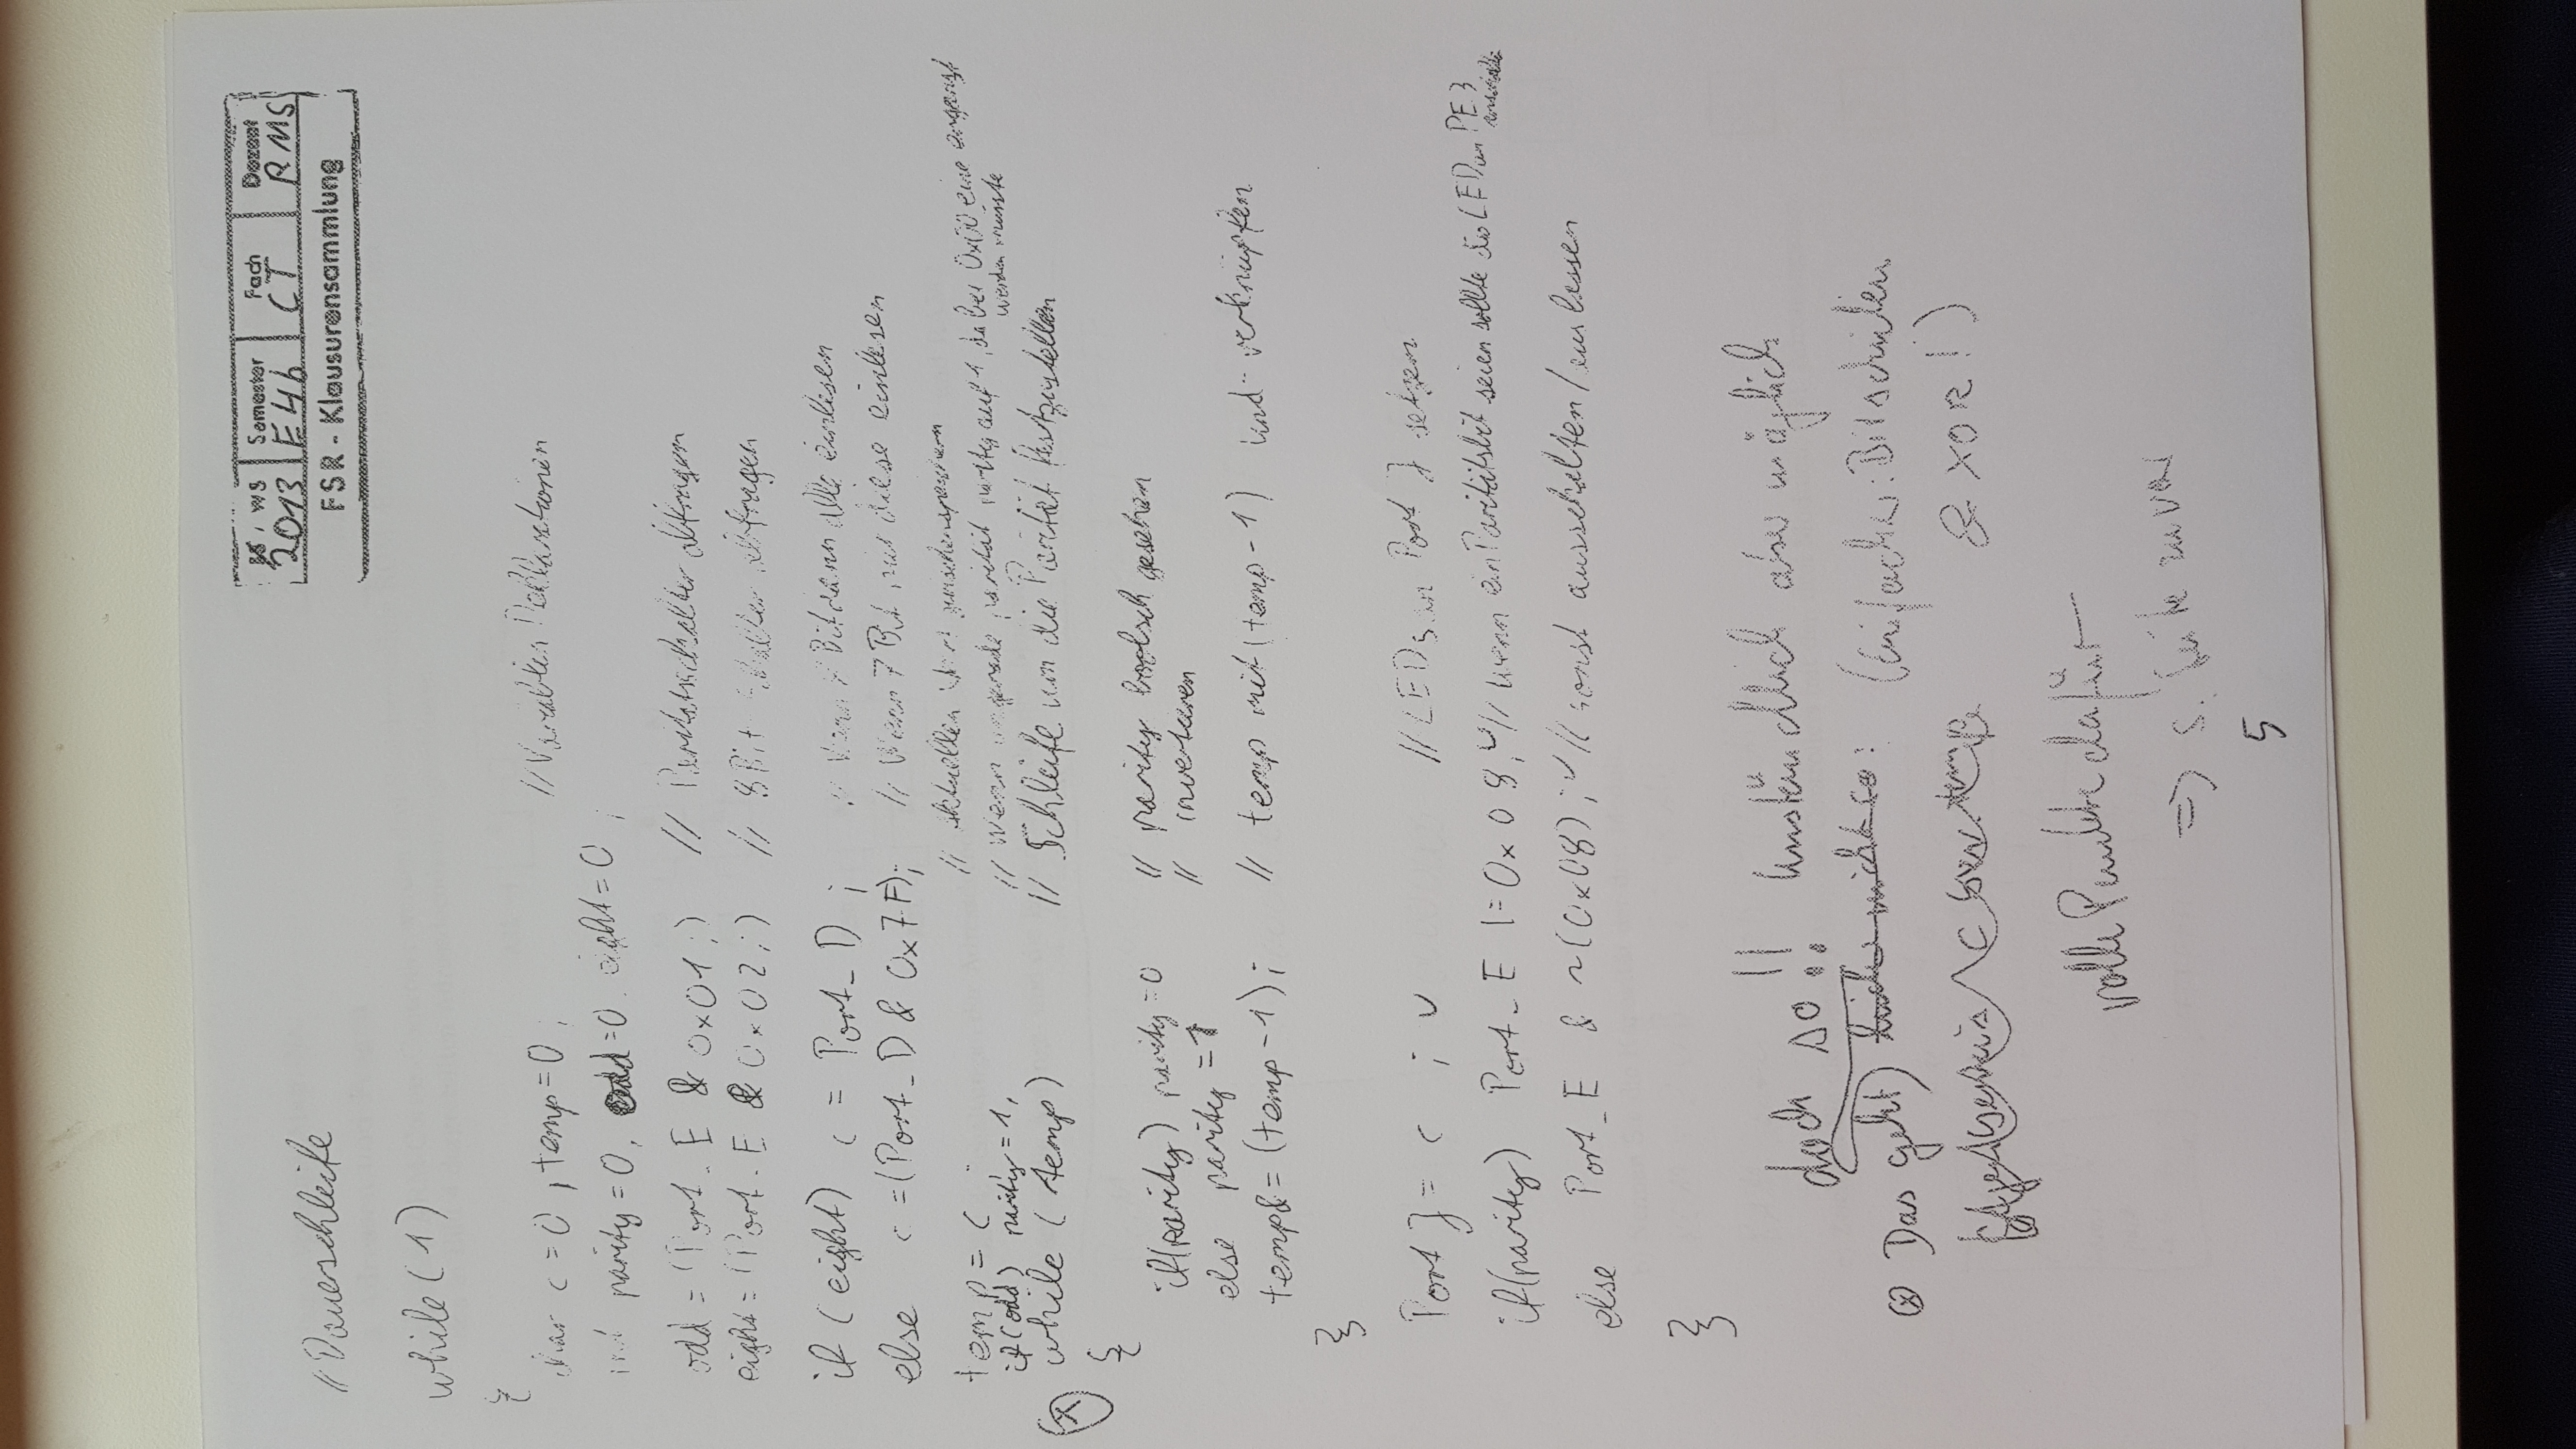 SS / WS Semester Fach Dozent
2013 E4b CT RMS
FSR - Klausurensammlung
// Dauerschleife
while (1)
{
char c = 0 , temp = 0 ; // Variablen Deklarationen
int parity = 0, odd = 0. eight = 0 ;
odd = (Port_E & 0x01;) // Paritätsschalter abfragen
eight = (Port_E & 0x02;) // 8 Bit Schalter abfragen
if (eight) c = Port_D ; // Wenn 8 Bit dann alle einlesen
else c =(Port_D & 0x7F); // Wenn 7 Bit nur diese einlesen
temp = c ; // Aktuellen Wert zwischenspeichern
if(odd) parity = 1, // Wenn ungerade parität parity auf 1, da bei 0x00 eine ergänzt werden müsste
(x) while ( temp) // Schleife um die Parität festzustellen
{
if(parity) parity = 0 // parity boolsch gesehen
else parity = 1 // invertieren
temp&= (temp-1); // temp mit (temp-1) und verknüpfen
}
Port J = c ; ✓ // LEDs an Port J setzen
if(parity) Port_E |= 0x08; ✓ // Wenn ein Paritätsbit seien sollte die LED an PE3 anschalten
else Port_E & ~(0x08) ; ✓ // sonst ausschalten / aus lassen
}
doch so!! Umständlich aber möglich
(x) Das geht) leider nicht so: (Einfacher: Bitschieben
& XOR!)
volle Punkte dafür
=> s. Seite zuvor
5